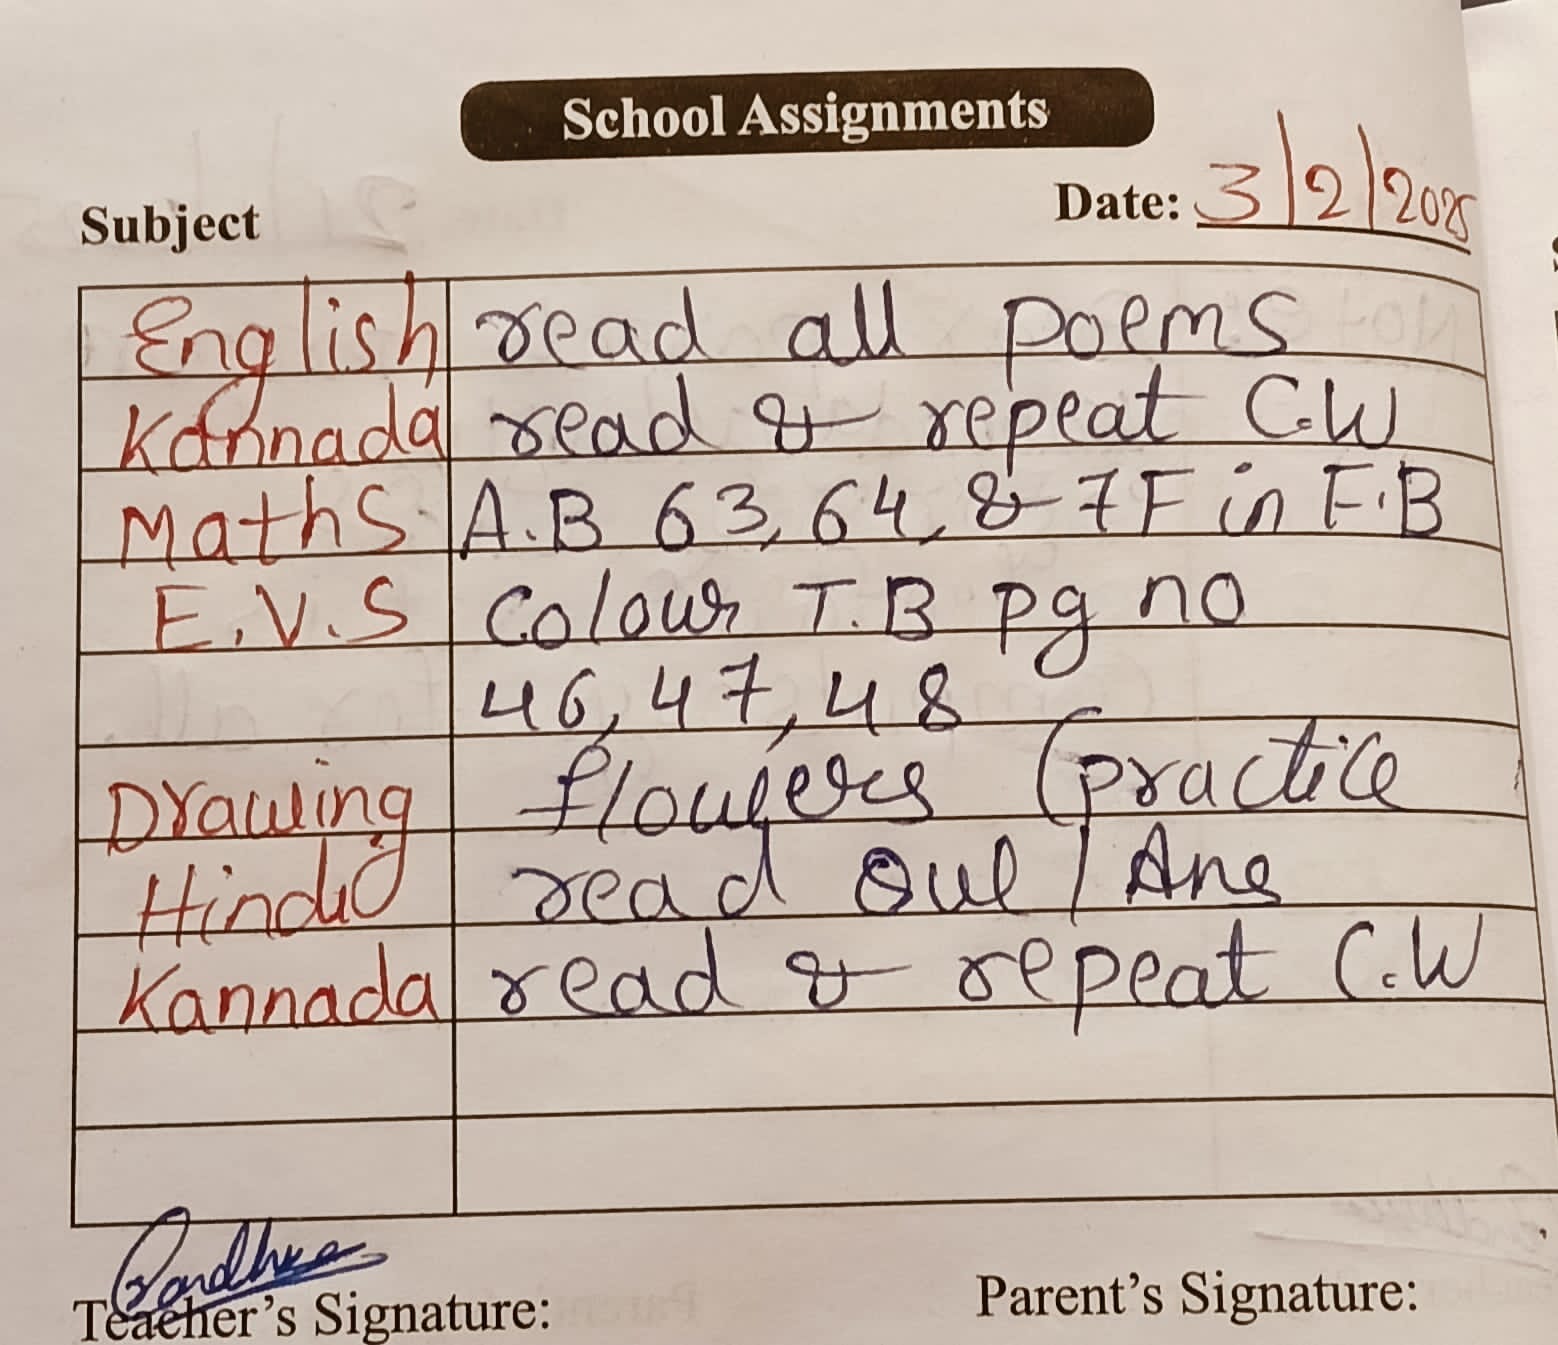 School Assignments
Subject Date: 3/2/2025
English read all poems
Kannada read & repeat C.W
Maths A.B 63, 64, & 7F in F.B
E.V.S Colour T.B pg no
46, 47, 48
Drawing flowers (practice
Hindi read Que / Ans
Kannada read & repeat C.W
Teacher's Signature: Parent's Signature: